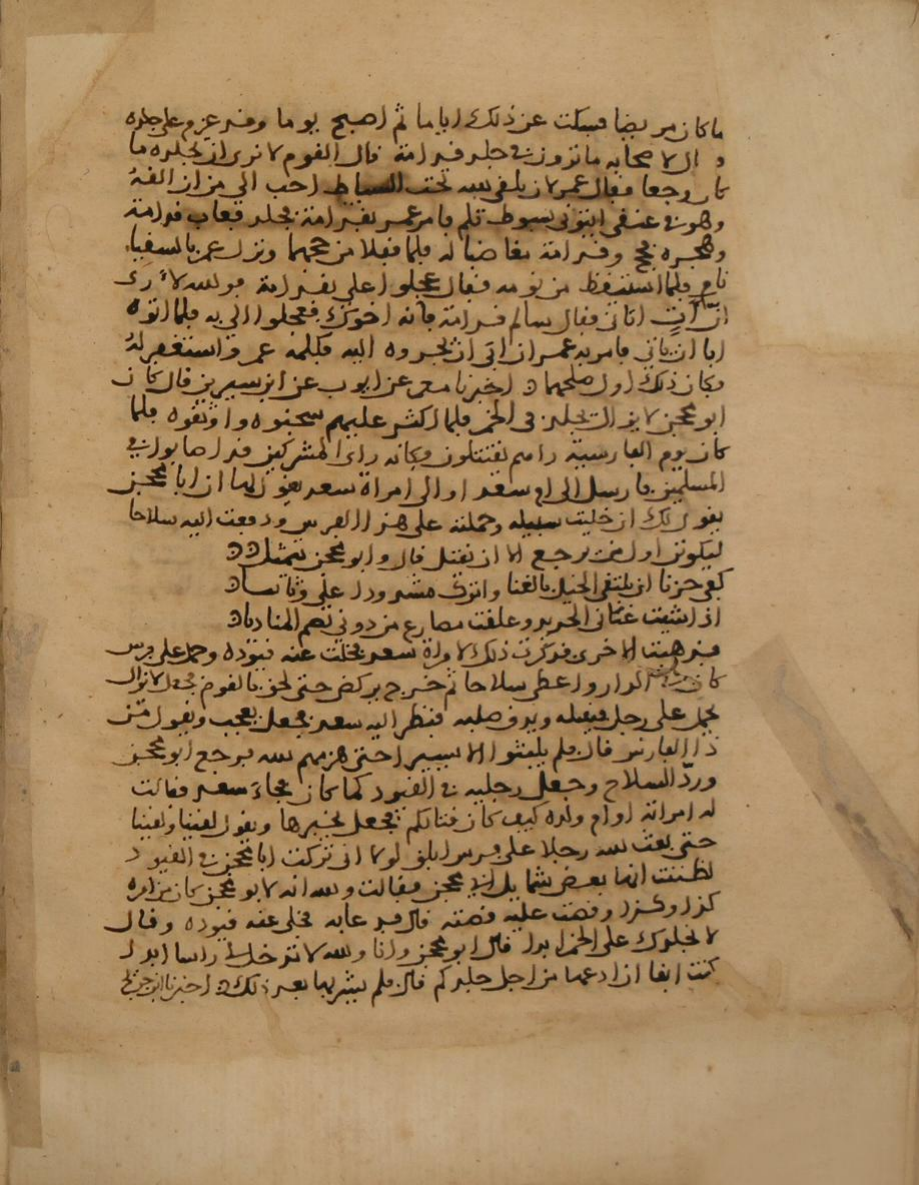 ما كان مريضا فسكت عن ذلك اياما ثم اصبح يوما وقد عزم على جلده
فقال لاصحابه ما ترون في جلد قدامة قال القوم لا نرى ان تجلده ما
كان وجعا فقال عمر لان يلقى الله تحت السياط احب الي من ان القاه
وهو في عنقي ايتوني بسوط تام فامر عمر بقدامة فجلد فغاضب قدامة
وهجره فحج وقدامة مغاضبا له فلما قفلا من حجهما ونزل عمر بالسقيا
نام فلما استيقظ من نومه فقال عجلوا علي بقدامة فوالله لا رى
ان آت اتاني فقال سالم قدامة فانه اخوك فعجلوا الي به فلما اتوه
ابا ان ياتي فامر به عمر ان ابى ان يجروه اليه فكلمه عمر واستغفر له
فكان ذلك اول صلحهما اخبرنا معمر عن ايوب عن ابن سيرين قال كان
ابو محجن لا يزال يجلد في الخمر فلما اكثر عليهم سجنوه واوثقوه فلما
كان يوم القادسية راهم يقتتلون فكانه راى المشركين قد اصابوا في
المسلمين فارسل الى ام سعد او الى امراة سعد يقول لها ان ابا محجن
يقول لك ان خليت سبيله وحملته على هذا الفرس ودفعت اليه سلاحا
ليكونن اول من يرجع الا ان يقتل قال وابو محجن يتمثل
كفى حزنا ان تلتقي الخيل بالقنا واترك مشدودا علي وثاقيا
اذا شيت عناني الحديد وغلقت مصارع من دوني تصم المناديا
فذهبت الاخرى فذكرت ذلك لامراة سعد فحلت عنه قيوده وحمل على فرس
كان في الدار واعطى سلاحا ثم خرج يركض حتى لحق بالقوم فجعل لا يزال
يحمل على رجل فيقتله ويدق صلبه فنظر اليه سعد فجعل يعجب ويقول من
ذا الفارس قال فلم يلبثوا الا يسيرا حتى هزمهم الله فرجع ابو محجن
ورد السلاح وجعل رجليه في القيود كما كان فجاء سعد فقالت
له امراته او ام ولده كيف كان قتالكم فجعل يخبرها ويقول لقينا ولقينا
حتى بعث الله رجلا على فرس ابلق لولا اني تركت ابا محجن في القيود
لظننت انها بعض شمايل ابي محجن فقالت والله انه لابو محجن كان من امره
كذا وكذا وقصت عليه قصته قال فدعا به فحل عنه قيوده وقال
لا نجلدك على الخمر ابدا قال ابو محجن وانا والله لا تدخل راسا ابدا
كنت انفا ان ادعها من اجل جلدكم قال فلم يشربها بعد ذلك اخبرنا ابن جريج